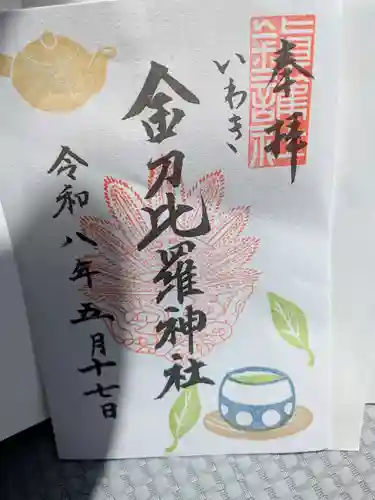 奉拝
いわき
金刀比羅神社
令和八年五月十七日